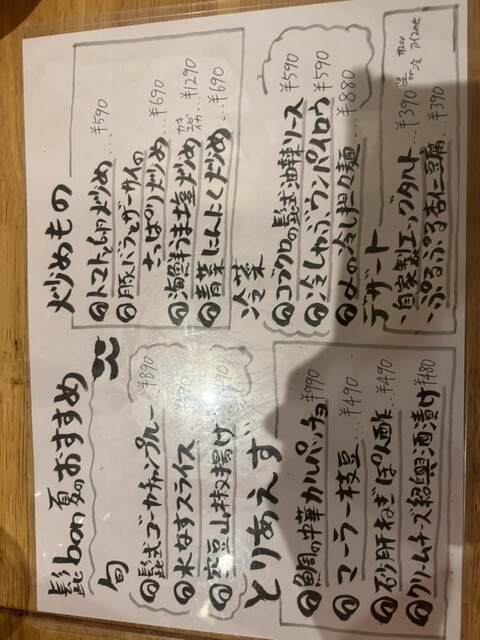 髭bon 夏のおすすめ
旬
髭式ゴーヤチャンプルー ¥890
水なすスライス
空豆山椒揚げ
とりあえず
鯛の中華カルパッチョ ¥990
マーラー枝豆 … ¥490
砂肝ねぎぽん酢 … ¥490
クリームチーズ紹興酒漬け ¥480
炒めもの
トマトと卵炒め … ¥590
豚バラとザーサイの
さっぱり炒め … ¥690
海鮮うま塩炒め … ¥1290
青菜にんにく炒め … ¥690
冷菜
コブクロの髭式油辣ソース ¥590
冷しゃぶウンパイロウ ¥590
〆の冷し担々麺 … ¥880
デザート
自家製エッグタルト … ¥390
ぷるぷる杏仁豆腐 … ¥390